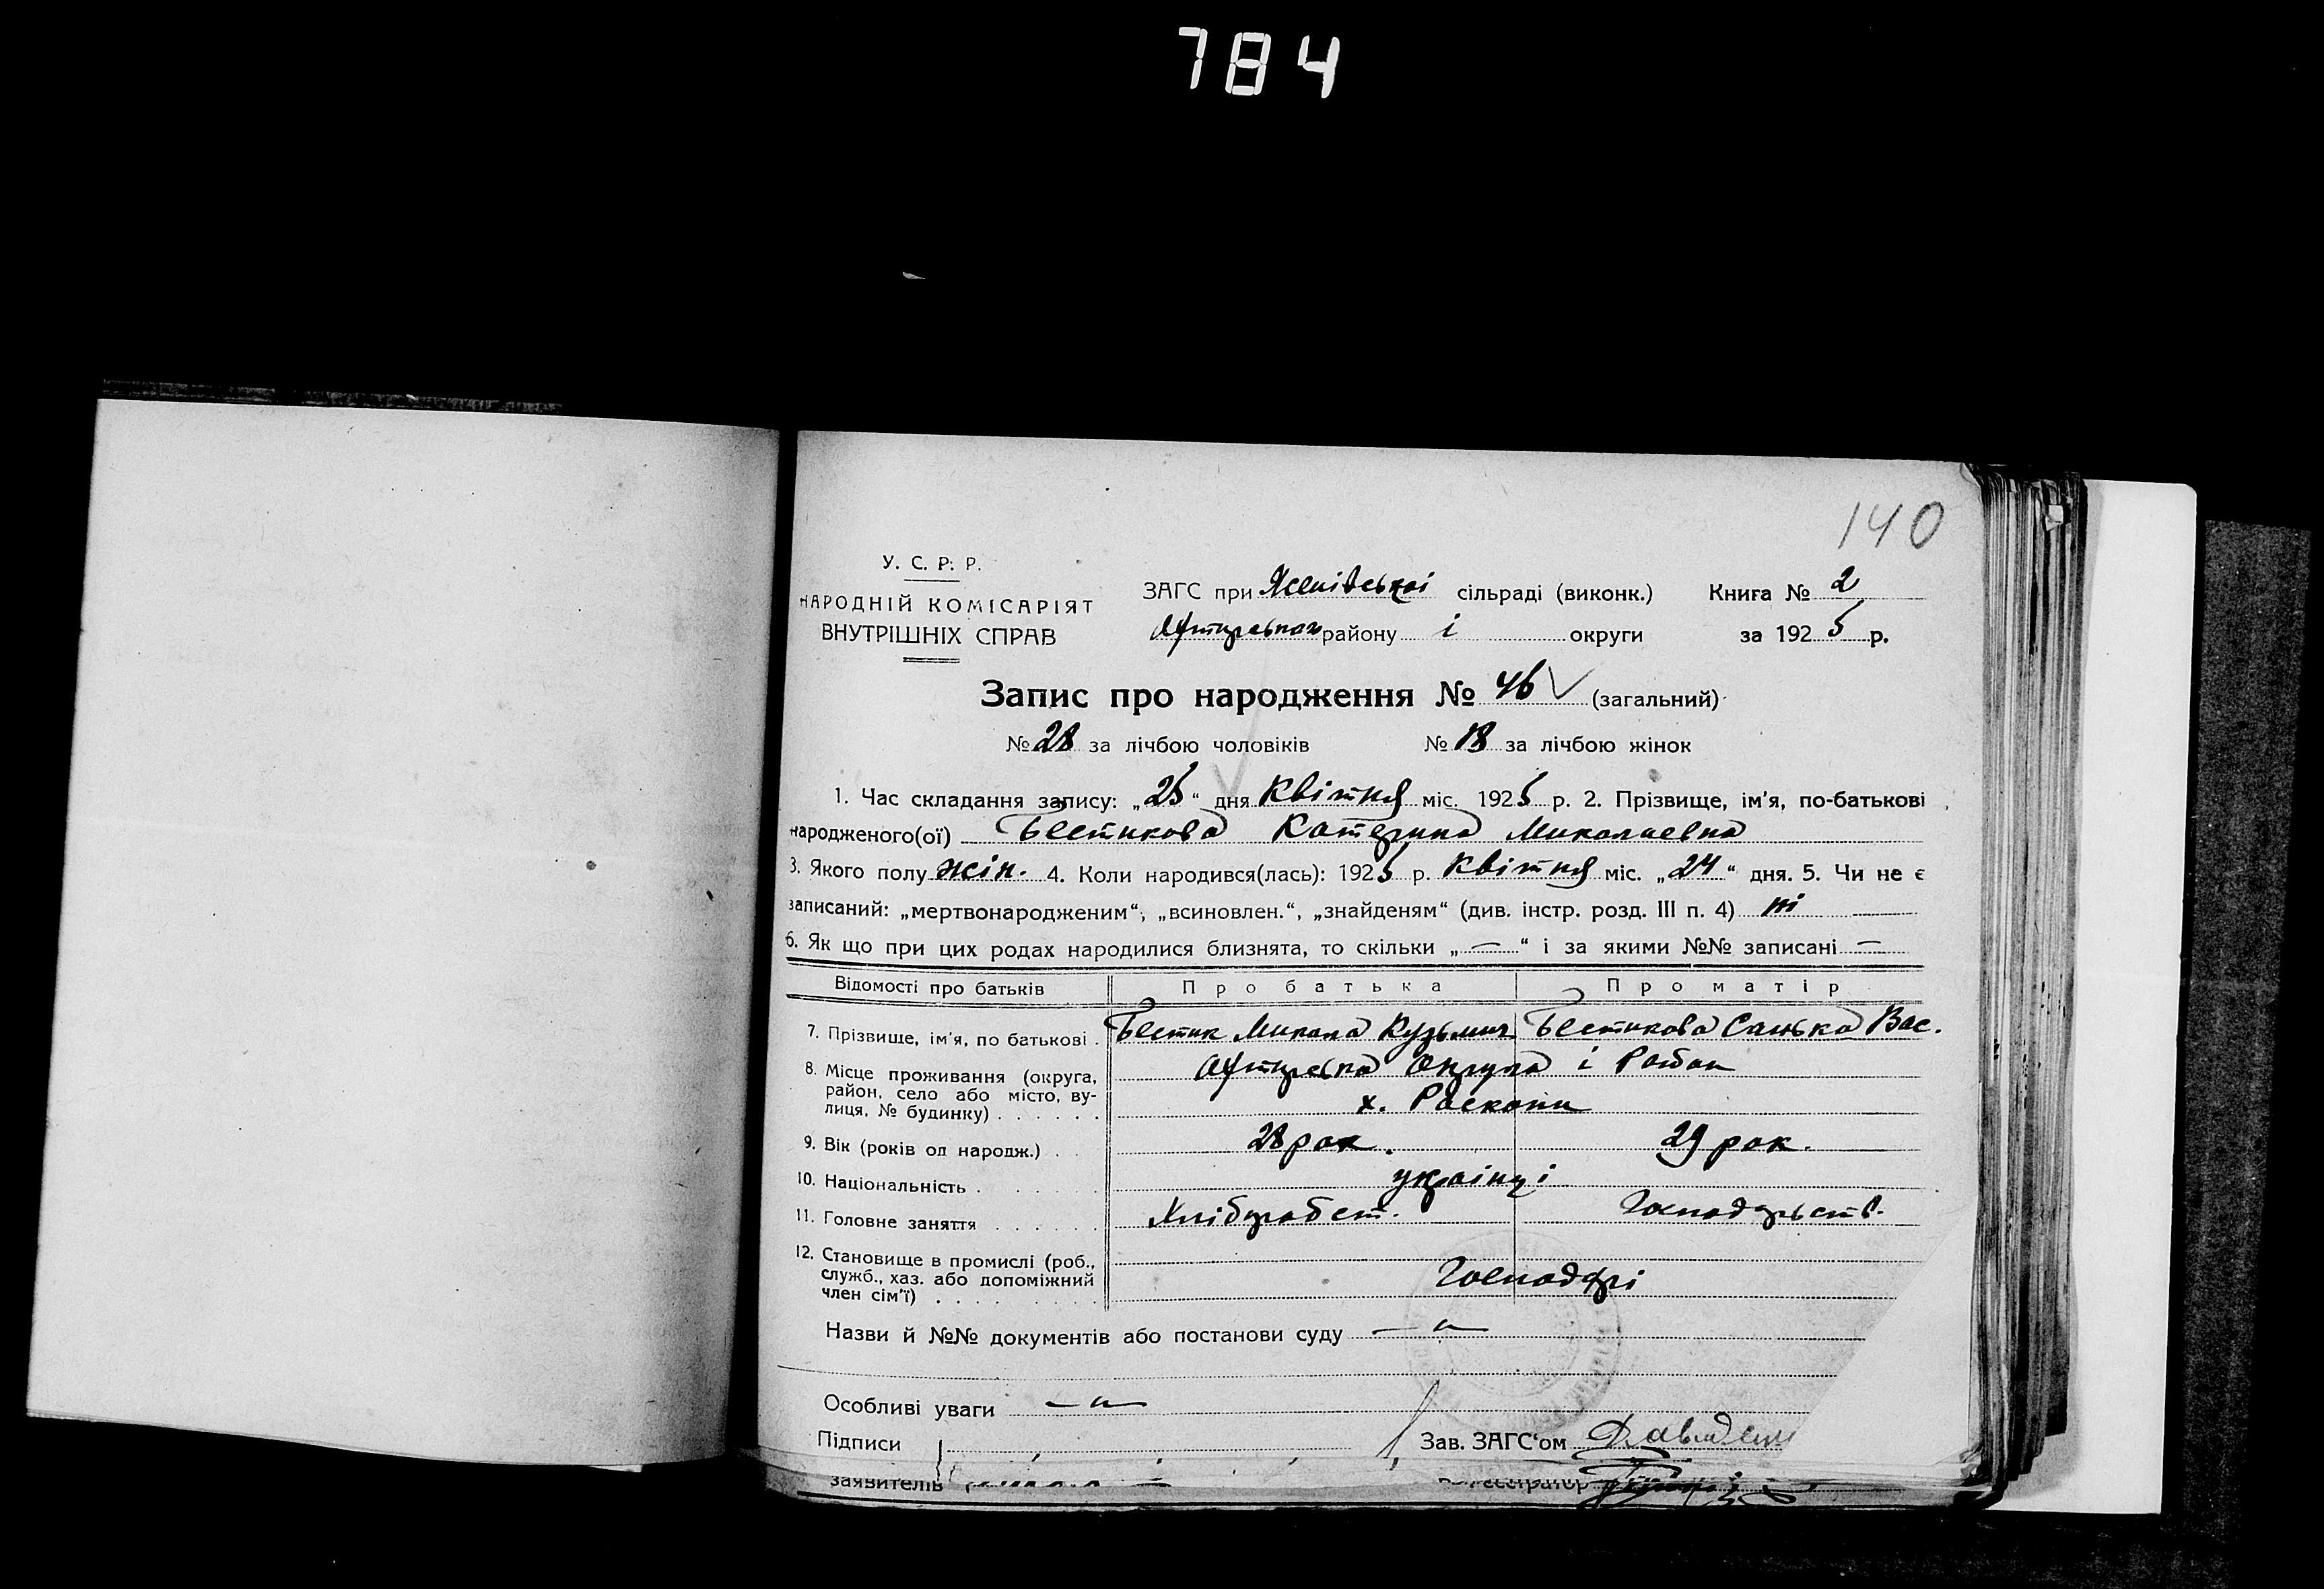 784
140
У. С. Р. Р.
НАРОДНІЙ КОМІСАРІЯТ
ВНУТРІШНІХ СПРАВ
ЗАГС при Ясенівській сільраді (виконк.) Книга № 2
Охтирськог району і округи за 1925 р.
Запис про народження № 46 (загальний)
№ 28 за лічбою чоловіків № 18 за лічбою жінок
1. Час складання запису: „25“ дня Квітня міс. 1925 р. 2. Прізвище, ім'я, по-батькові
народженого(ої) Бестикова Катерина Миколаевна
3. Якого полу жін. 4. Коли народився(лась): 1925 р. Квітня міс. „24“ дня. 5. Чи не є
записаний: „мертвонародженим“, „всиновлен.“, „знайденям“ (див. інстр. розд. III п. 4) ні
6. Як що при цих родах народилися близнята, то скільки „—“ і за якими №№ записані —
Відомості про батьків Про батька Про матір
7. Прізвище, ім'я, по батькові . Бестик Микола Кузьмич Бестикова Санька Вас.
8. Місце проживання (округа, район, село або місто, вулиця, № будинку) . . . . . . Охтирська Округа і Район
х. Раскопи
9. Вік (років од народж.) . . 28 рок. 29 рок.
10. Національність . . . . . . українці
11. Головне заняття . . . . . . Хліборобст. Господарьств.
12. Становище в промислі (роб., служб., хаз. або допоміжний член сім'ї) . . . . . . . . . Господарі
Назви й №№ документів або постанови суду — " —
Особливі уваги — " —
Підписи Зав. ЗАГС'ом
заявителів Реєстратор